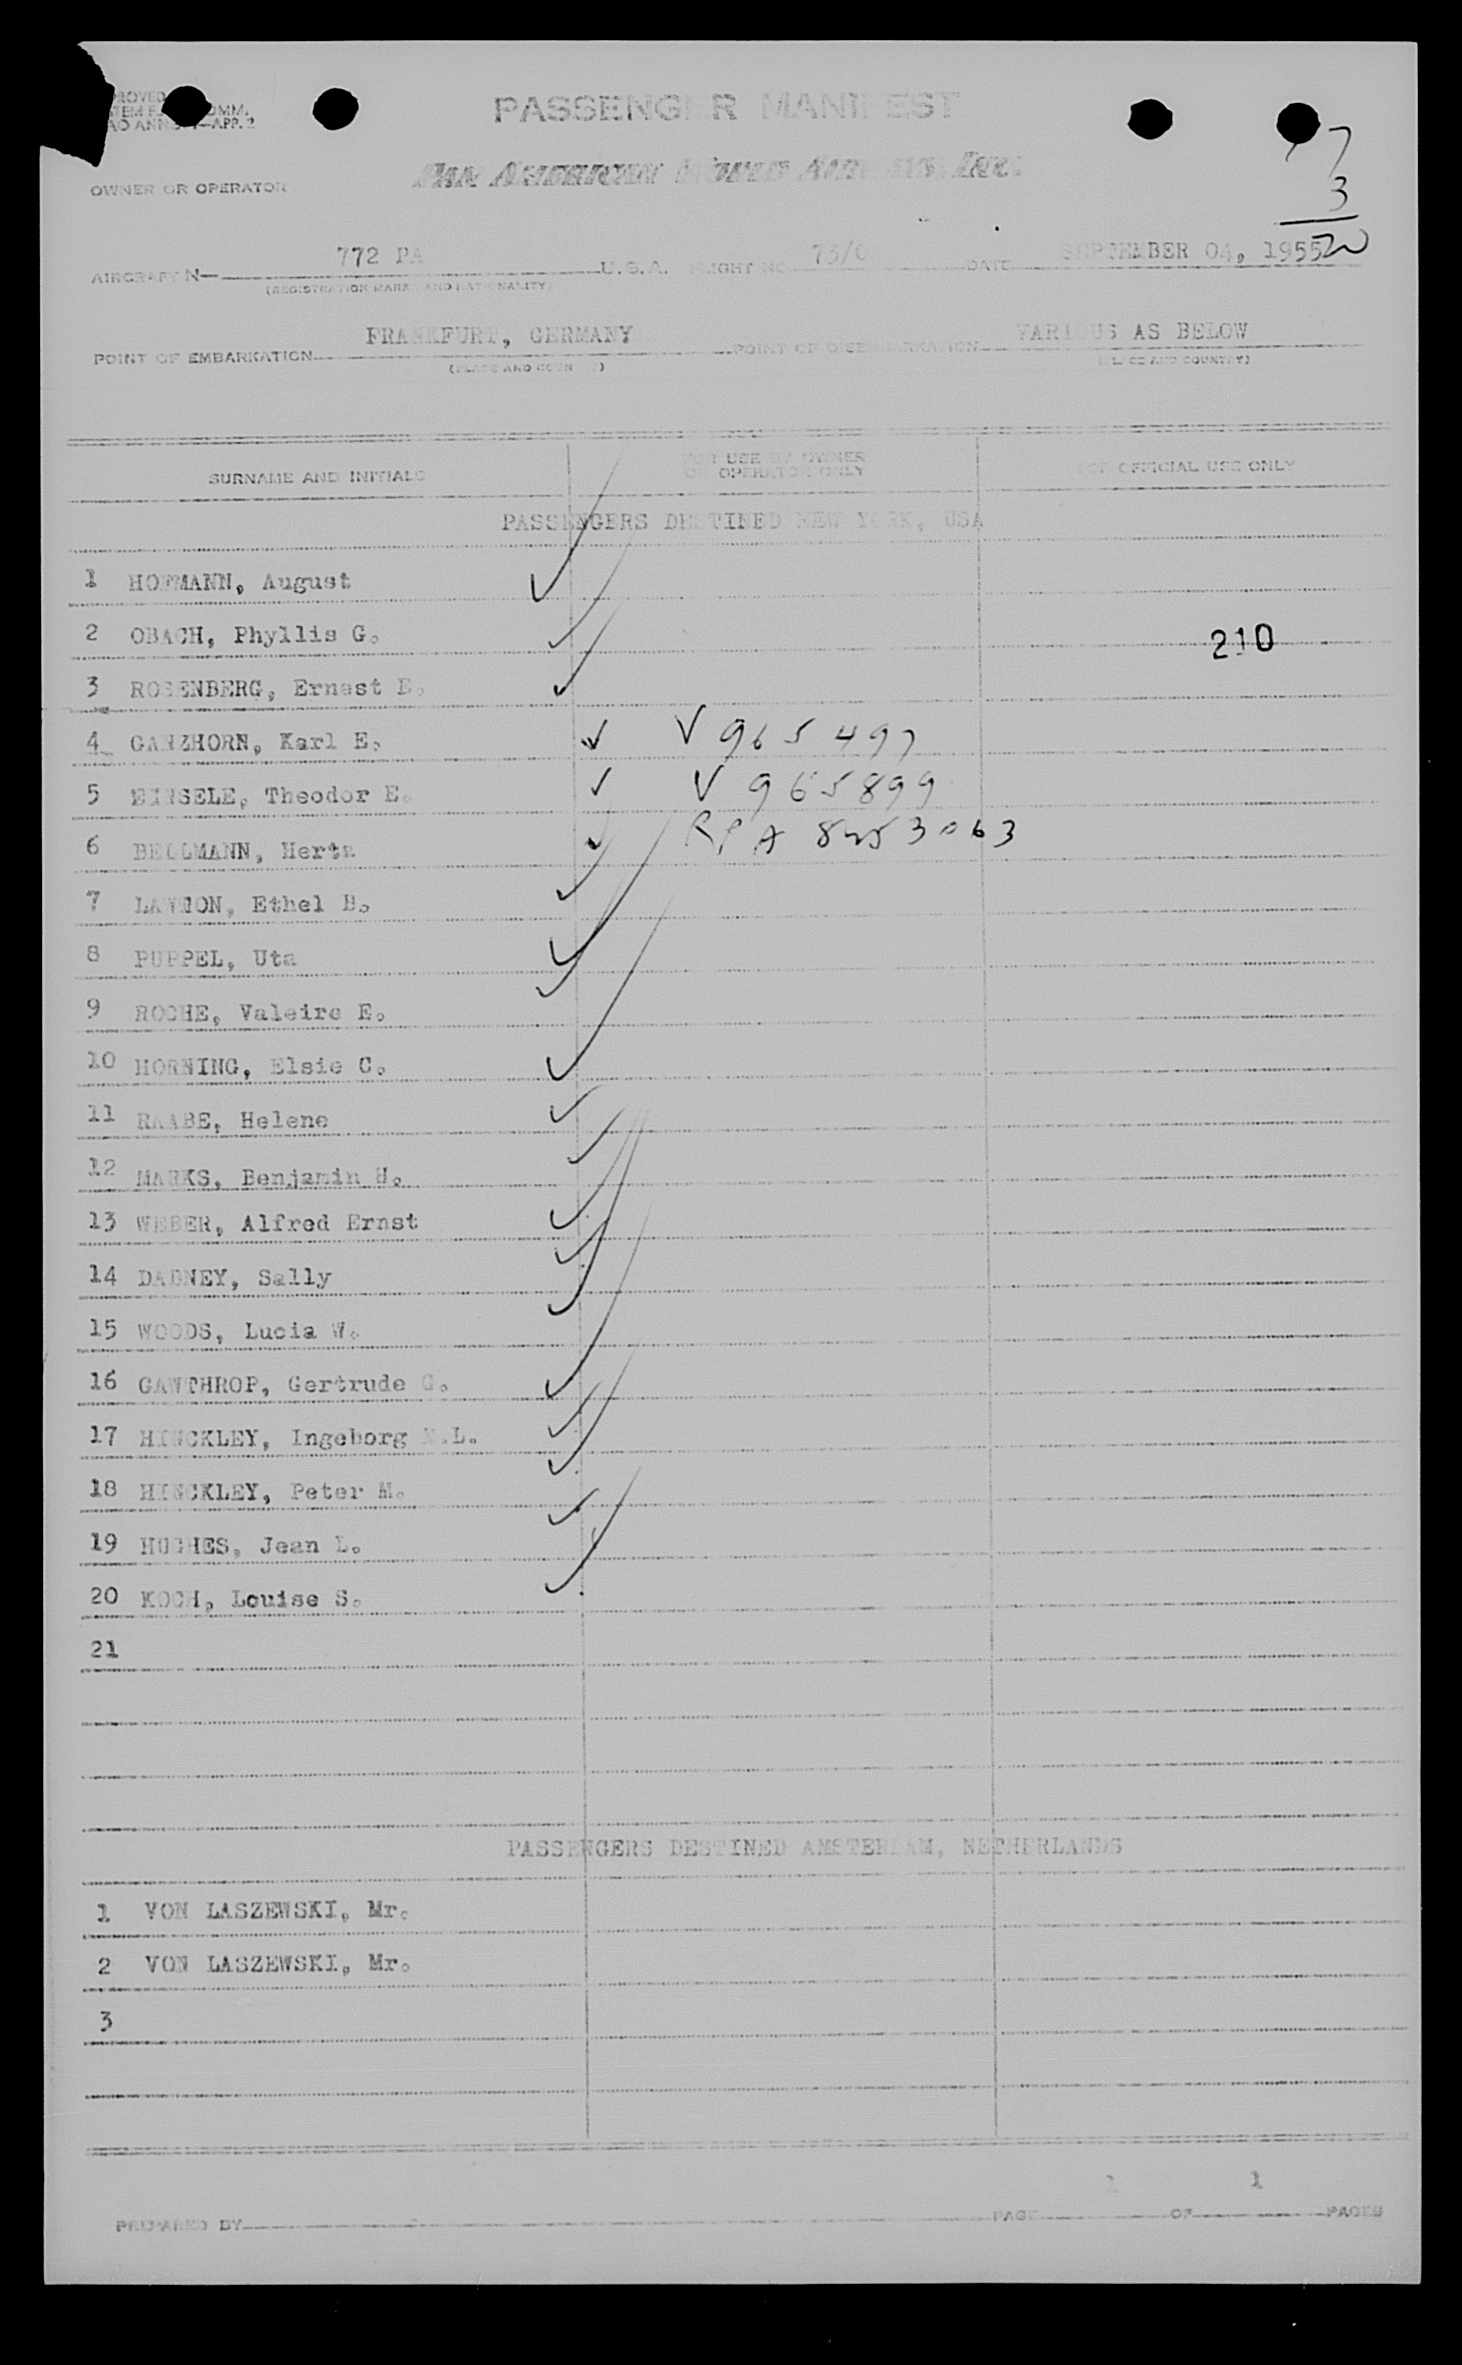 PASSENGER MANIFEST
PAN AMERICAN WORLD AIRWAYS, INC.
OWNER OR OPERATOR
17
3
20
AIRCRAFT N— 772 PA U.S.A. FLIGHT NO. 73/0 DATE SEPTEMBER 04, 1955
(REGISTRATION MARKS AND NATIONALITY)
POINT OF EMBARKATION FRANKFURT, GERMANY POINT OF DISEMBARKATION VARIOUS AS BELOW
(PLACE AND COUNTRY) (PLACE AND COUNTRY)
SURNAME AND INITIALS FOR USE BY OWNER OR OPERATOR ONLY FOR OFFICIAL USE ONLY
PASSENGERS DESTINED NEW YORK, USA
1 HOFMANN, August
2 OBACH, Phyllis G. 210
3 ROSENBERG, Ernest E.
4 GANZHORN, Karl E. V 965497
5 EINSELE, Theodor E. V 965899
6 BELLMANN, Herta RPA 8253063
7 LAWSON, Ethel B.
8 PUPPEL, Uta
9 ROCHE, Valeire E.
10 HORNING, Elsie C.
11 RAABE, Helene
12 MARKS, Benjamin H.
13 WEBER, Alfred Ernst
14 DABNEY, Sally
15 WOODS, Lucia W.
16 GAWTHROP, Gertrude G.
17 HINCKLEY, Ingeborg .L.
18 HINCKLEY, Peter M.
19 HUGHES, Jean L.
20 KOCH, Louise S.
21
PASSENGERS DESTINED AMSTERDAM, NETHERLANDS
1 VON LASZEWSKI, Mr.
2 VON LASZEWSKI, Mr.
3
PREPARED BY PAGE 1 OF 1 PAGES